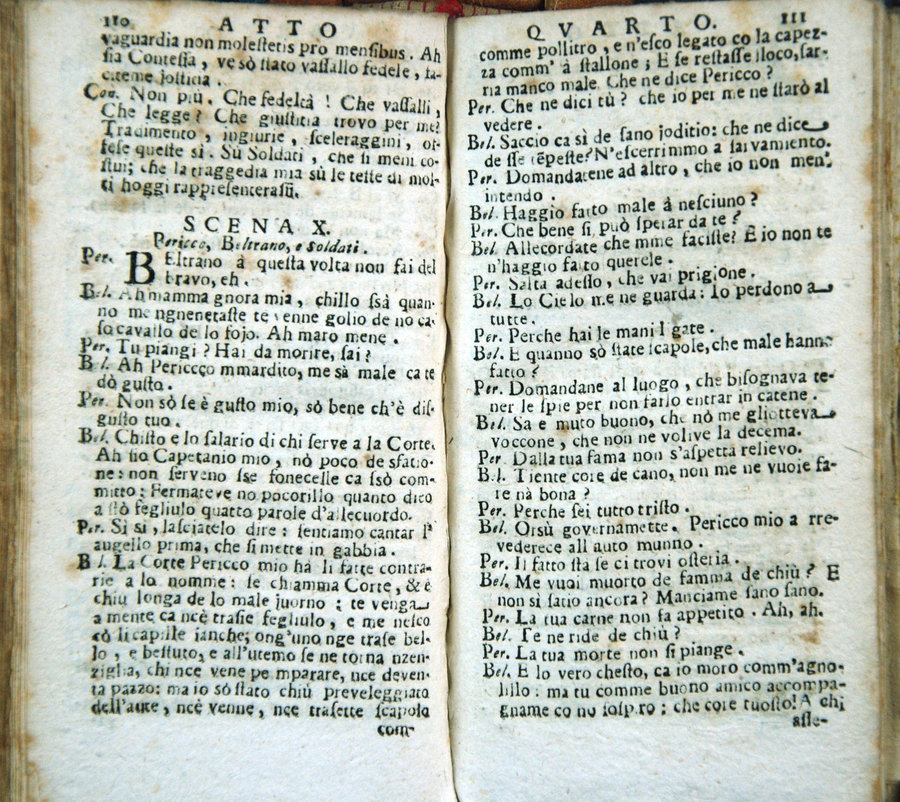 110 ATTO
vaguardia non molesteris pro mensibus. Ah
sia Contessa, ve sò stato vassallo fedele, fa-
citeme jostitia.
Con. Non più. Che fedeltà! Che vassalli,
Che legge? Che giustitia trovo per me?
Tradimento, ingiurie, sceleraggini, of-
fese queste sì. Sù Soldati, che si meni co-
stui; che la traggedia mia sù le teste di mol-
ti hoggi rappresenterassi.
SCENA X.
Pericco, Beltrano, e Soldati.
Per. BEltrano à questa volta non fai del
bravo, eh.
Bel. Ah mamma gnora mia, chillo ssà quan-
no me ngnenetaste te venne golio de no ca-
so cavallo de lo fojo. Ah maro mene.
Per. Tu piangi? Hai da morire, sai?
Bel. Ah Pericco mmardito, me sà male ca te
dò gusto.
Per. Non sò se è gusto mio, sò bene ch'è dis-
gusto tuo.
Bel. Chisto e lo salario di chi serve a la Corte.
Ah sio Capetanio mio, nò poco de sfatio-
ne: non serveno sse fonecelle ca ssò com-
mitto: Fermateve no pocorillo quanto dico
a stò fegliulo quatto parole d'allecuordo.
Per. Si si, lasciatelo dire: sentiamo cantar l'
augello prima, che si mette in gabbia.
Bel. La Corte Pericco mio hà li fatte contra-
rie a lo nomme: se chiamma Corte, & è
chiù longa de lo male juorno: te venga
a mente ca ncè trasie fegliulo, e me nesco
cò li capille janche; ong'uno nge trase bel-
lo, e bestuto, e all'utemo se ne torna nzen-
ziglia, chi nce vene pe mparare, nce deven-
ta pazzo: ma io sò stato chiù preveleggiato
dell'aute, ncè venne, nce trasette scapola
com-
QVARTO. 111
comme pollitro, e n'esco legato co la capez-
za comm' à stallone; E se restasse lloco, sar-
ria manco male. Che ne dice Pericco?
Per. Che ne dici tù? che io per me ne starò al
vedere.
Bel. Saccio ca sì de sano joditio: che ne dice
de sse tēpeste? N'escerrimmo a sarvamiento.
Per. Domandatene ad altro, che io non men'
intendo.
Bel. Haggio fatto male à nesciuno?
Per. Che bene si può sperar da te?
Bel. Allecordate che mme faciste? E io non te
n'haggio fatto querele.
Per. Salta adesso, che vai prigione.
Bel. Lo Cielo me ne guarda: Io perdono a
tutte.
Per. Perche hai le mani legate.
Bel. E quanno sò state scapole, che male hanno
fatto?
Per. Domandane al luogo, che bisognava te-
ner le spie per non farlo entrar in catene.
Bel. Sa e muto buono, che nò me gliotteva
voccone, che non ne volive la decema.
Per. Dalla tua fama non s'aspetta relievo.
Bel. Tiente core de cano, non me ne vuoie fa-
re nà bona?
Per. Perche sei tutto tristo.
Bel. Orsù governamette. Pericco mio a rre-
vederece all'auto munno.
Per. Il fatto sta se ci trovi osteria.
Bel. Me vuoi muorto de famma de chiù? E
non si satio ancora? Manciame sano sano.
Per. La tua carne non fa appetito. Ah, ah.
Bel. Te ne ride de chiù?
Per. La tua morte non si piange.
Bel. E lo vero chesto, ca io moro comm'agno-
lillo: ma tu comme buono amico accompa-
gname co no sospiro: che core tuosto! A chi
asse-